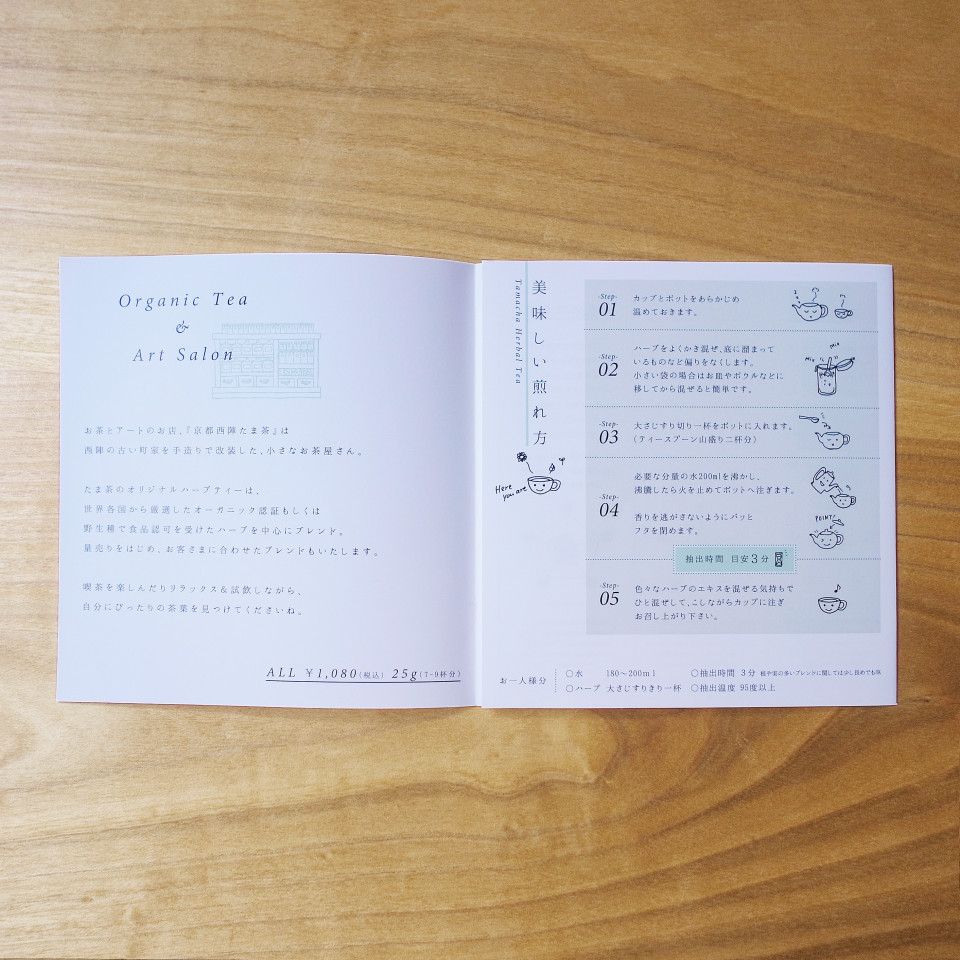 Organic Tea
&
Art Salon
お茶とアートのお店、『京都西陣たま茶』は
西陣の古い町家を手造りで改装した、小さなお茶屋さん。
たま茶のオリジナルハーブティーは、
世界各国から厳選したオーガニック認証もしくは
野生種で食品認可を受けたハーブを中心にブレンド。
量売りをはじめ、お客さまに合わせたブレンドもいたします。
喫茶を楽しんだりリラックス＆試飲しながら、
自分にぴったりの茶葉を見つけてくださいね。
ALL ¥1,080(税込) 25g(7-9杯分)
美味しい煎れ方
Tamacha Herbal Tea
Here you are
-Step-
01
カップとポットをあらかじめ
温めておきます。
-Step-
02
ハーブをよくかき混ぜ、底に溜まって
いるものなど偏りをなくします。
小さい袋の場合はお皿やボウルなどに
移してから混ぜると簡単です。
mix
mix
-Step-
03
大さじすり切り一杯をポットに入れます。
(ティースプーン山盛り二杯分)
-Step-
04
必要な分量の水200mlを沸かし、
沸騰したら火を止めてポットへ注ぎます。
香りを逃がさないようにパッと
フタを閉めます。
POINT
抽出時間 目安3分
-Step-
05
色々なハーブのエキスを混ぜる気持ちで
ひと混ぜして、こしながらカップに注ぎ
お召し上がり下さい。
お一人様分
○水 180〜200ml
○ハーブ 大さじすりきり一杯
○抽出時間 3分 根や実の多いブレンドに関しては少し長めでもOK
○抽出温度 95度以上